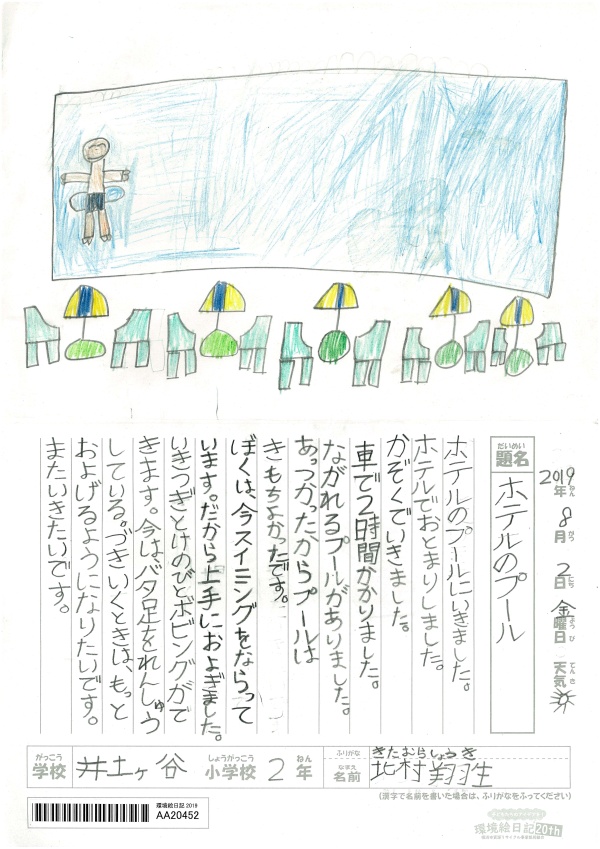 2019年ねん8月がつ2日にち金曜日ようび天気てんき
題名だいめい
ホテルのプール
ホテルのプールにいきました。
ホテルでおとまりしました。
かぞくでいきました。
車で2時間かかりました。
ながれるプールがありました。
あつかったからプールは
きもちよかったです。
ぼくは、今スイミングをならって
います。だから上手におよぎました。
いきつぎとけのびとボビングがで
きます。今は、バタ足をれんしゅう
している。づきいくときは、もっと
およげるようになりたいです。
またいきたいです。
がっこう しょうがっこう ねん ふりがな きたむらしょうき
学校 井土ヶ谷 小学校 2年 なまえ 名前 北村翔生
(漢字で名前を書いた場合は、ふりがなをふってください)
環境絵日記 2019
AA20452
環境絵日記20th